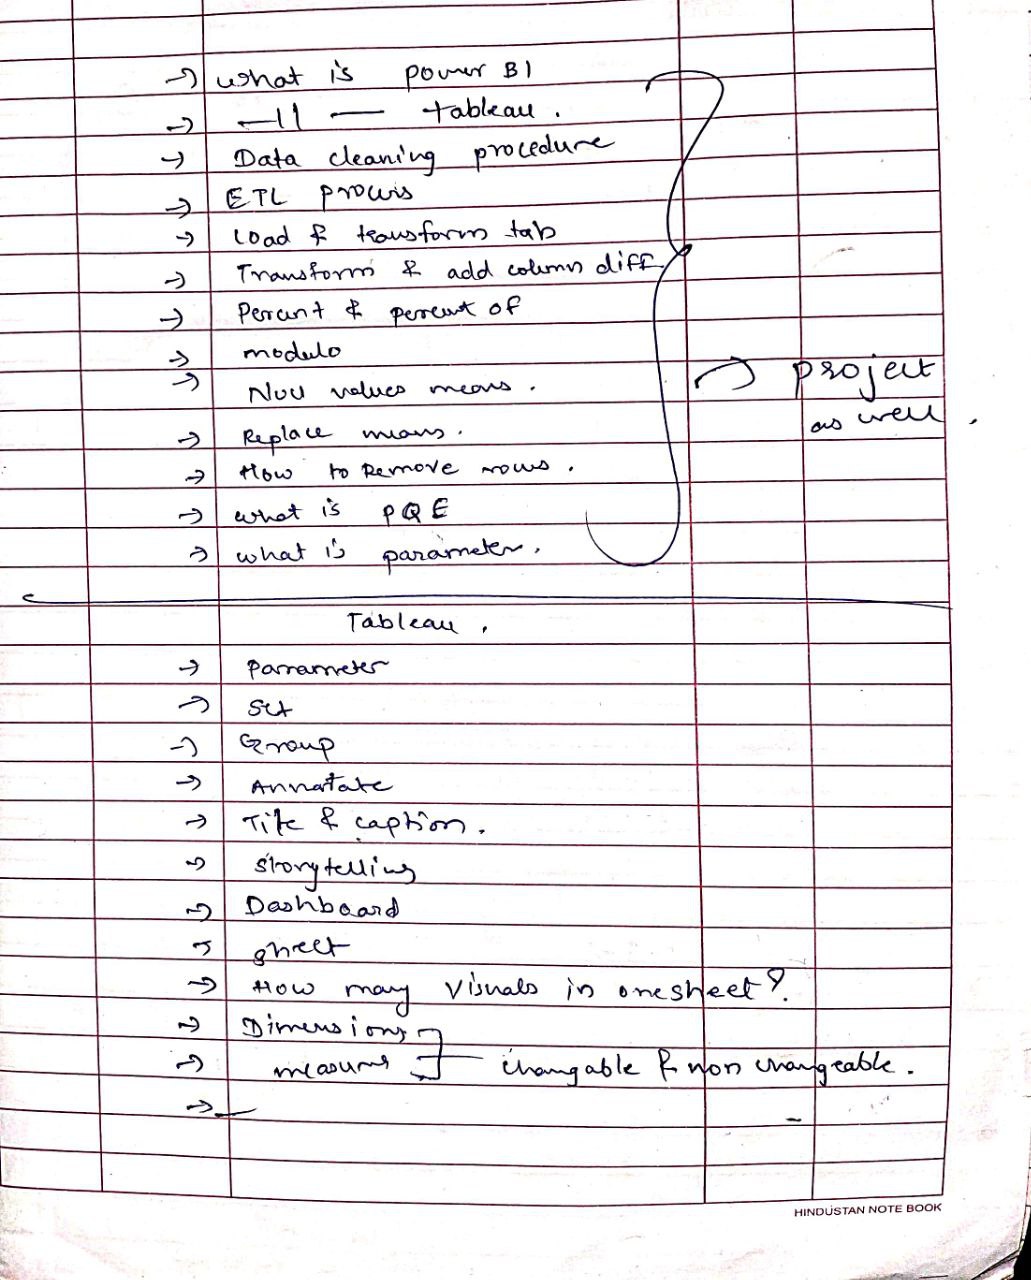 → what is power BI
→ —||— tableau.
→ Data cleaning procedure
→ ETL process
→ Load & transform tab
→ Transform & add column diff
→ Percent & percent of
→ modulo
→ Null values means.
→ Replace means.
→ How to Remove rows.
→ what is PQE
→ what is parameter.
→ project
as well.
Tableau.
→ Parameter
→ Set
→ Group
→ Annotate
→ Title & caption.
→ storytelling
→ Dashboard
→ sheet
→ How many visuals in one sheet?
→ Dimensions
→ measures changable & non changeable.
→ —
HINDUSTAN NOTE BOOK